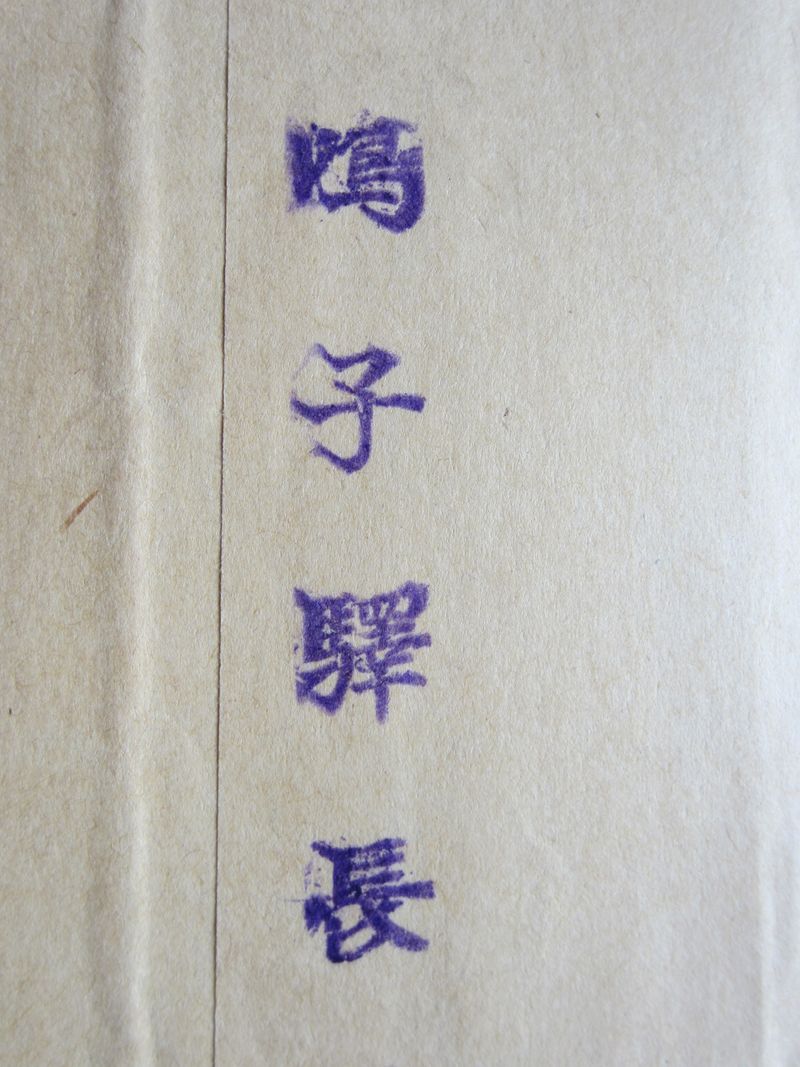 鳴子驛長